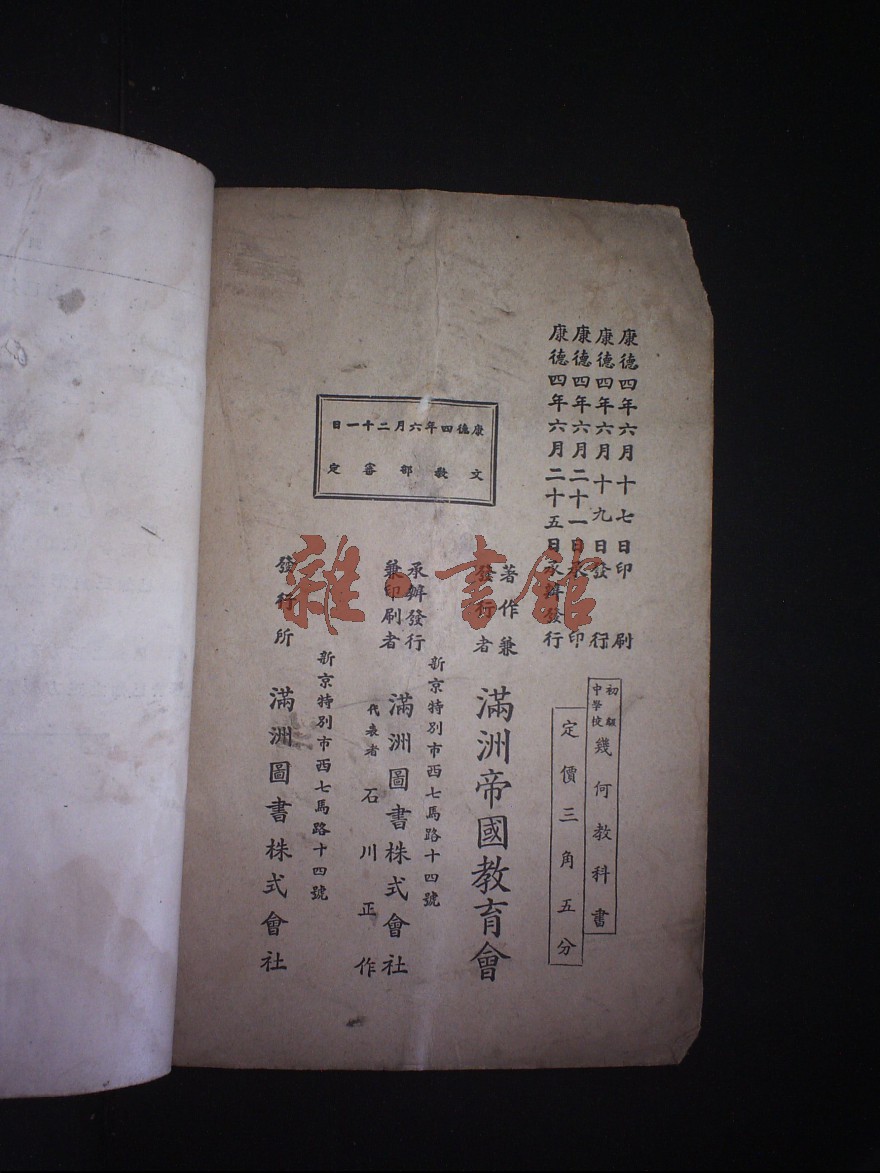 康德四年六月十七日印刷
康德四年六月十九日發行
康德四年六月二十一日承印
康德四年六月二十五日承辦發行
初級
中學校
幾何教科書
定價三角五分
康德四年六月二十一日
文教部審定
著作兼
發行者
滿洲帝國教育會
新京特別市西七馬路十四號
承辦發行
兼印刷者
滿洲圖書株式會社
代表者 石川正作
新京特別市西七馬路十四號
發行所 滿洲圖書株式會社
雜·書館